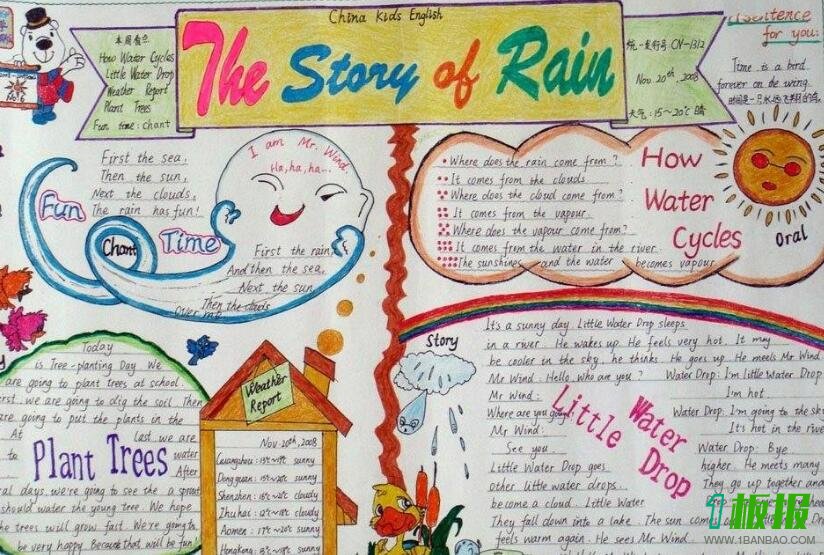 China Kids English
The Story of Rain
本周看点
How Water Cycles
Little Water Drop
Weather Report
Plant Trees
Fun time: chant
统一发行号 CN-1312
Nov. 20th, 2008
天气: 15~20℃ 晴
sentence
for you:
Time is a bird
forever on the wing.
First the sea,
Then the sun,
Next the clouds,
The rain has fun!
Fun
Chant
Time
I am Mr. Wind
Ha, ha, ha...
First the rain,
And then the sea,
Next the sun,
Then the clouds
Over me
Where does the rain come from?
It comes from the clouds
Where does the cloud come from?
It comes from the vapour.
Where does the vapour come from?
It comes from the water in the river.
The sunshines and the water becomes vapour
How
Water
Cycles
Oral
Today
is Tree-planting Day. We
are going to plant trees at school.
we are going to dig the soil. Then
are going to put the plants in the
At last we are
to water
After
days we're going to see the a sprout
should water the young tree. We hope
the trees will grow fast. We're going to
be very happy. Because that will be fun!
Plant Trees
Weather
Report
Nov. 20th, 2008
Guangzhou: sunny
Dongguan: sunny
Shenzhen: cloudy
Zhuhai: cloudy
Aomen: sunny
Hongkong: sunny
Story
It's a sunny day. Little Water Drop sleeps
in a river. He wakes up. He feels very hot. It may
be cooler in the sky, he thinks. He goes up. He meets Mr Wind.
Mr Wind: Hello, who are you? Water Drop: I'm little Water Drop
Mr Wind: I'm hot
Where are you going? Water Drop: I'm going to the sky
Mr Wind: It's hot in the river
See you Water Drop: Bye
Little Water Drop goes higher. He meets many
Other little water drops. They go up together and
become a cloud. Little Water
They fall down into a lake. The sun
feels warm again. He sees Mr Wind.
Little Water Drop
1板报
WWW.1BANBAO.COM